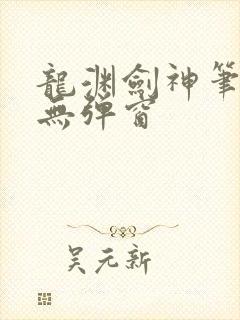 龍渊劍神筆
無彈窗
吴元新